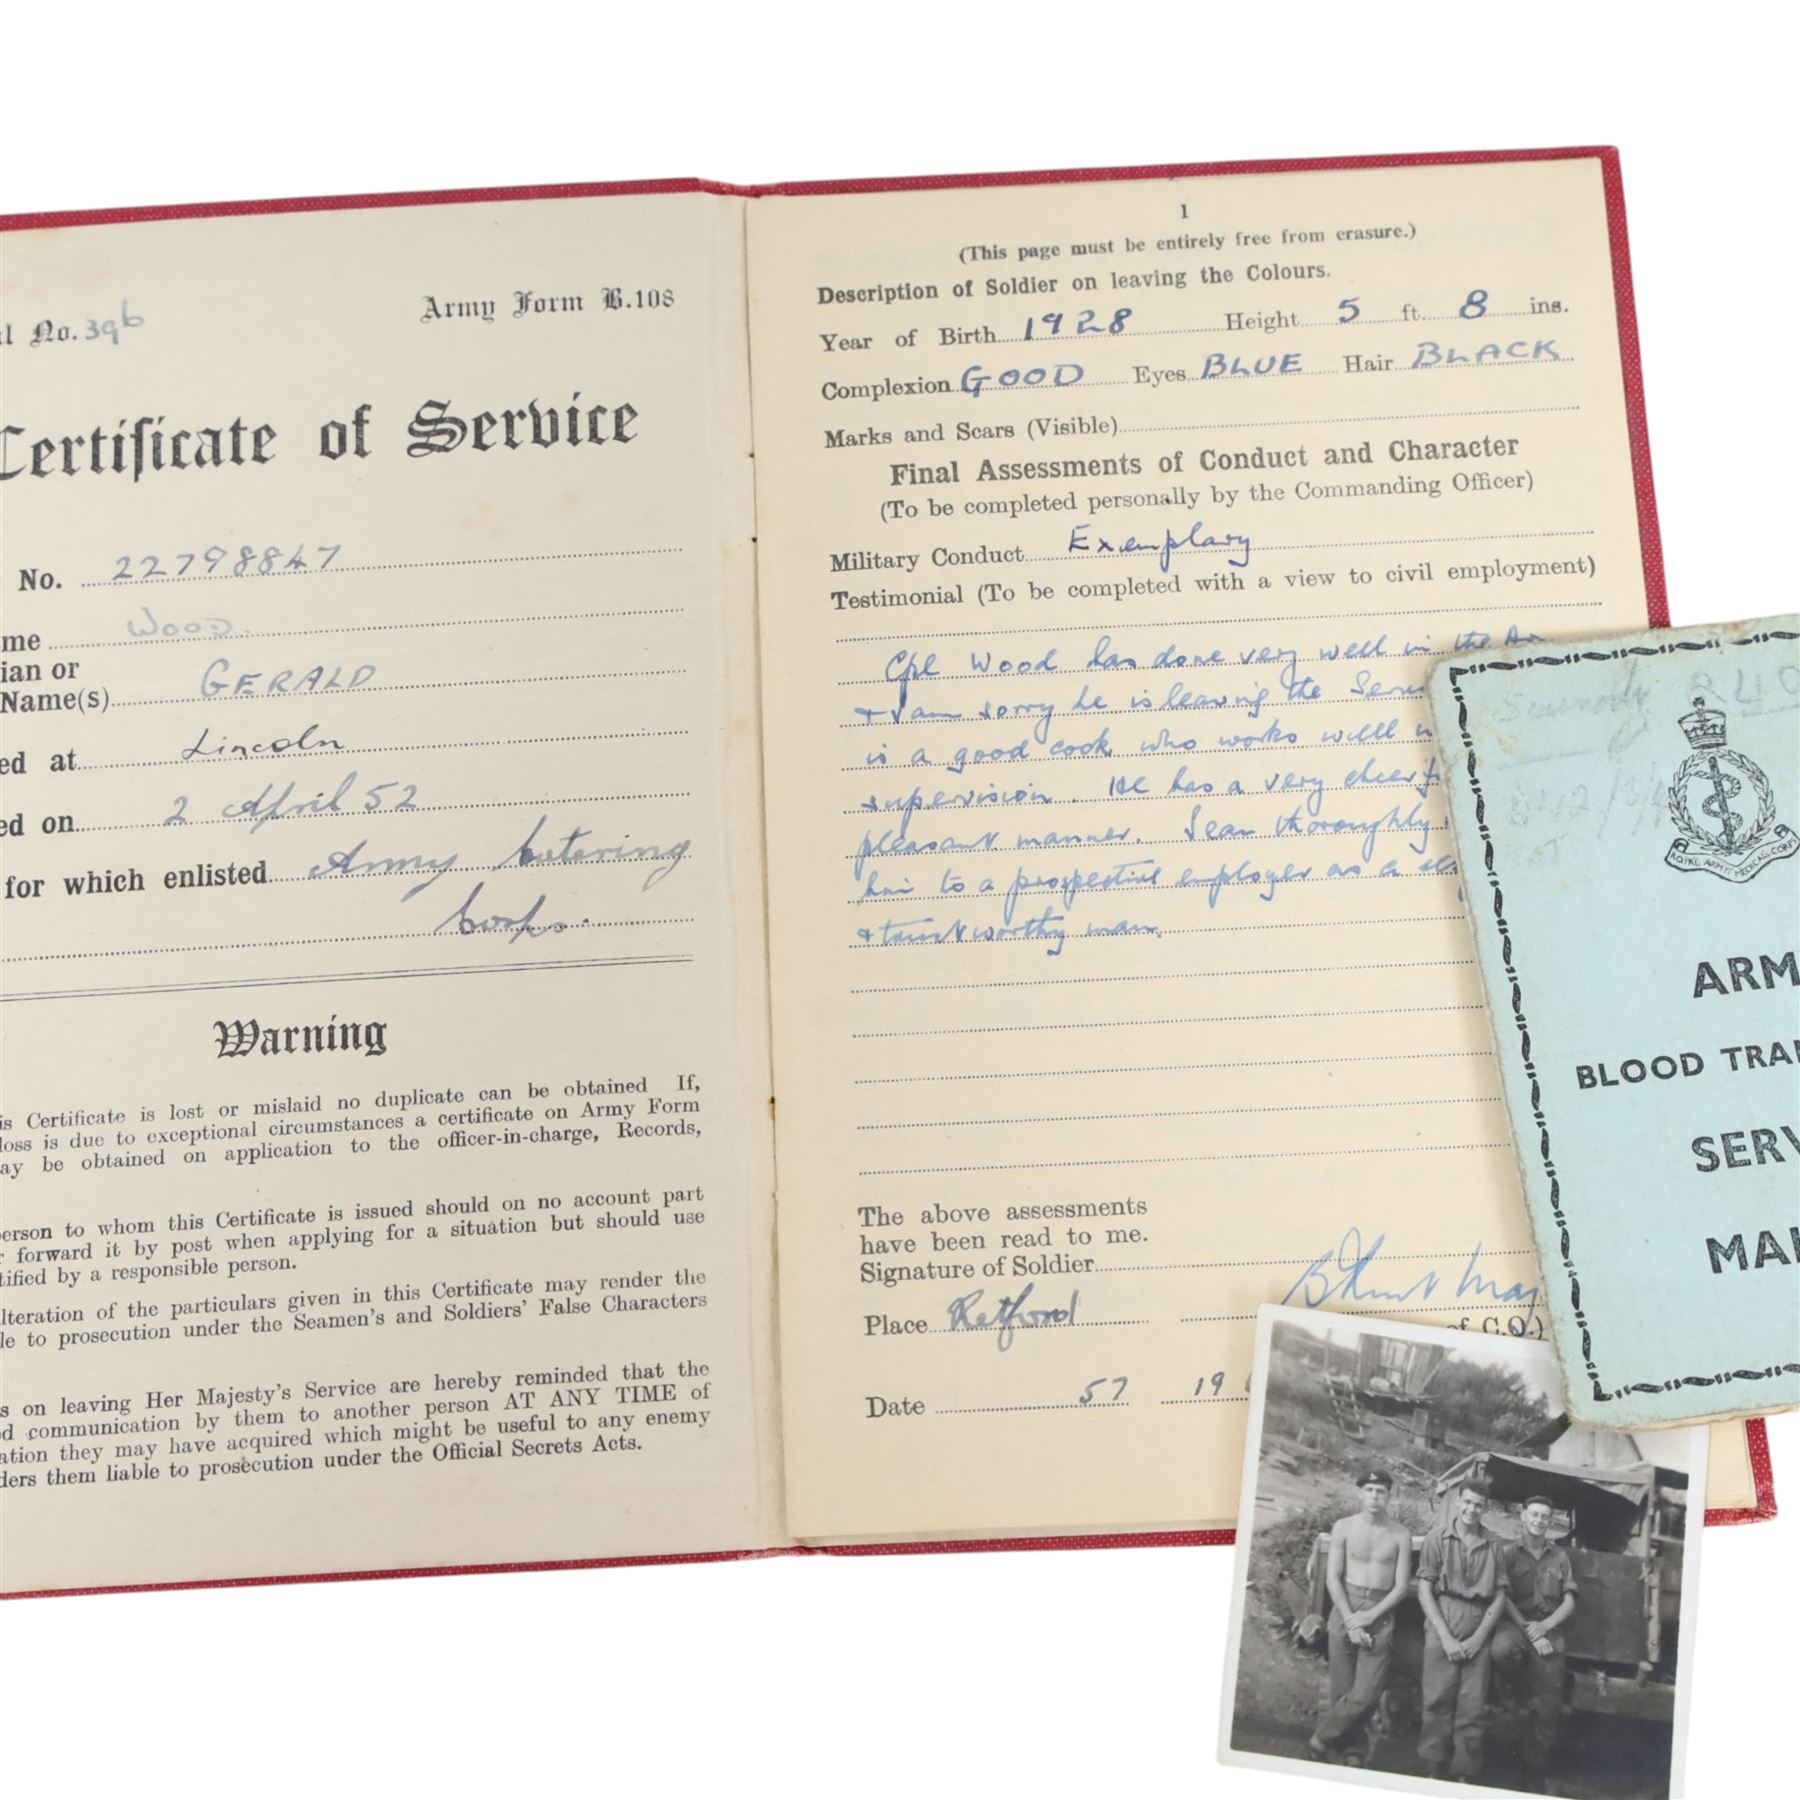 No. 396
Army Form B.108
Certificate of Service
No. 22798847
WOOD
GERALD
Name(s)
at Lincoln
on 2 April 52
for which enlisted Army Catering
Corps.
Warning
Certificate is lost or mislaid no duplicate can be obtained If,
loss is due to exceptional circumstances a certificate on Army Form
be obtained on application to the officer-in-charge, Records,
to whom this Certificate is issued should on no account part
forward it by post when applying for a situation but should use
by a responsible person.
of the particulars given in this Certificate may render the
to prosecution under the Seamen's and Soldiers' False Characters
on leaving Her Majesty's Service are hereby reminded that the
communication by them to another person AT ANY TIME of
they may have acquired which might be useful to any enemy
them liable to prosecution under the Official Secrets Acts.
1
(This page must be entirely free from erasure.)
Description of Soldier on leaving the Colours.
Year of Birth 1928 Height 5 ft. 8 ins.
Complexion GOOD Eyes BLUE Hair BLACK
Marks and Scars (Visible)
Final Assessments of Conduct and Character
(To be completed personally by the Commanding Officer)
Military Conduct Exemplary
Testimonial (To be completed with a view to civil employment)
Cpl Wood has done very well in the
& I am sorry he is leaving the
is a good cook who works well
supervision. He has a very
pleasant manner. I can thoroughly
him to a prospective employer as a
& trustworthy man.
The above assessments
have been read to me.
Signature of Soldier
Place Retford
of C.O.)
Date 57 19
ROYAL ARMY MEDICAL CORPS
BLOOD